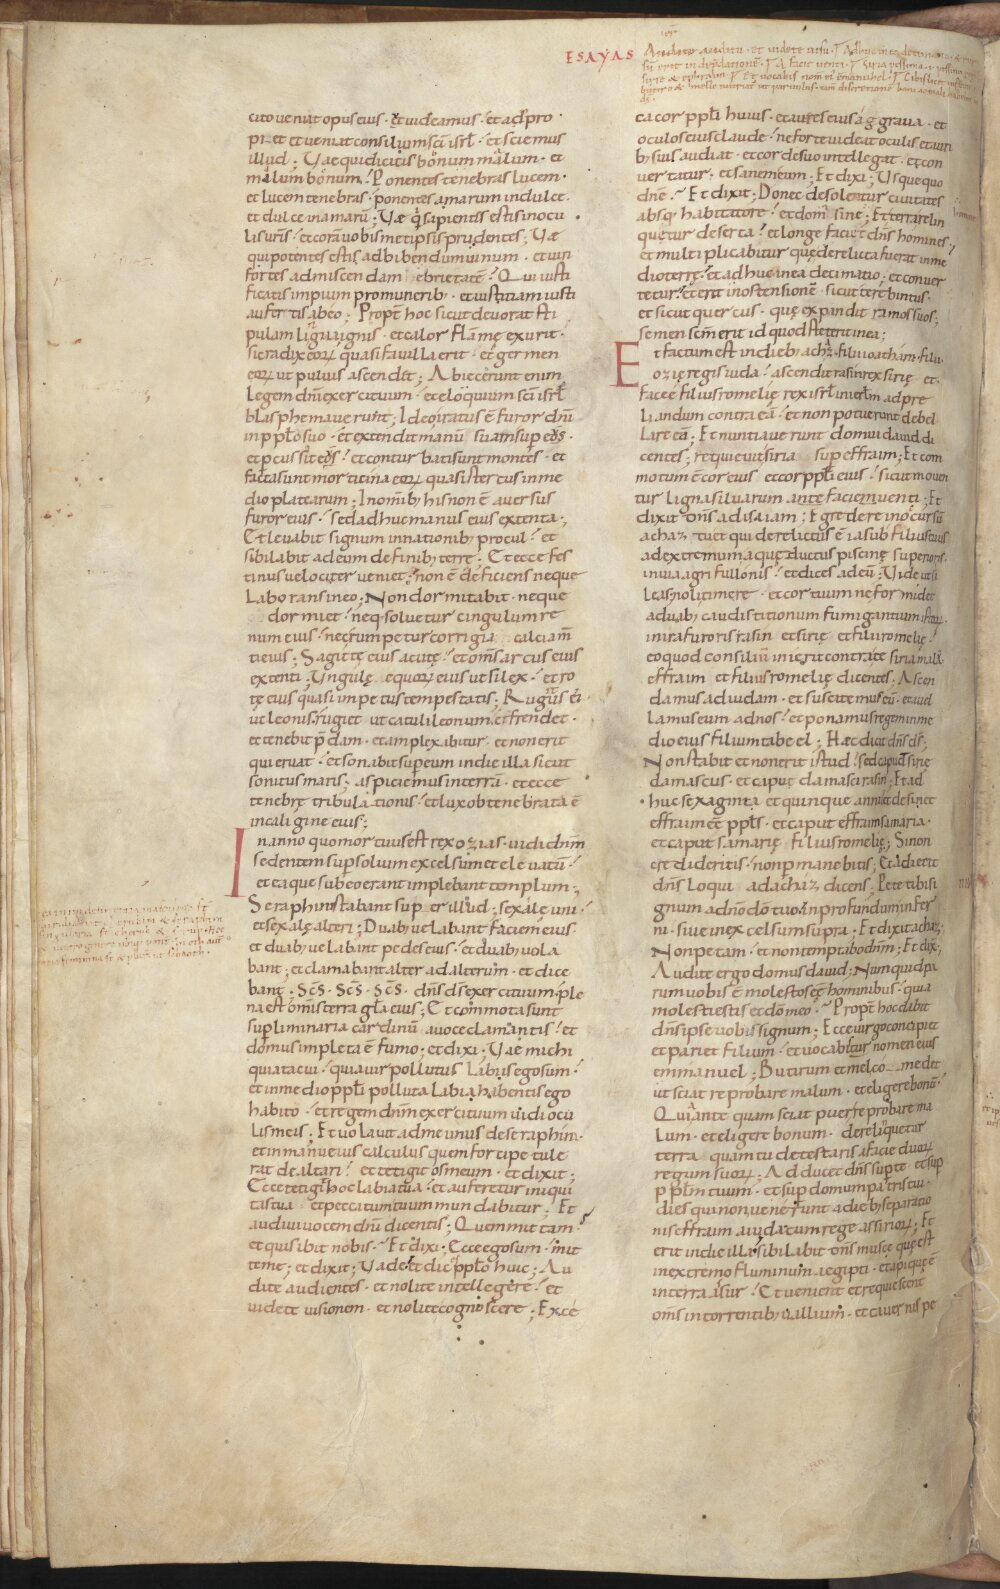 ESAYAS
Audite auditu · et videte visu ·
cito veniat opus eius · et uideamus · et ad pro
piet et ueniat consilium sc̄i isrl̄ · et sciemus
illud ; Vae qui dicitis bonum malum · et
malum bonum · Ponentes tenebras lucem ·
et lucem tenebras · ponentes amarum in dulce ·
et dulce in amarū ; Vae q̇ sapientes estis in ocu
lis ur̄is · et coram uobismetipsis prudentes ; Vae
qui potentes estis ad bibendum uinum · et uiri
fortes ad miscendam ebrietatē · Qui iusti
ficatis impium pro munerib; · et iustitiam iusti
aufertis ab eo ; Propt̄ hoc sicut deuorat sti
pulam lingua ignis · et calor flammę exurit ·
sic radix eoꝝ quasi fauilla erit · et germen
eoꝝ ut puluis ascendet ; Abiecerunt enim
legem dn̄i exercituum · et eloquium sc̄i isrl̄
blasphemauerunt ; Ideo iratus ē furor dn̄i
in pp̄lo suo · et extendit manū suam sup eos ·
et pcussit eos · et conturbati sunt montes · et
facta sunt morticina eoꝝ quasi stercus in me
dio platearum ; In om̄ib; his non ē auersus
furor eius · sed adhuc manus eius extenta ·
Et leuabit signum in nationib; procul · et
sibilabit ad eum de finib; terrę · Et ecce fes
tinus uelociter ueniet · non ē deficiens neque
laborans in eo ; Non dormitabit · neque
dormiet · neq; soluetur cingulum re
num eius · nec rumpetur corrigia calciam̄
ti eius ; Sagittę eius acutę · et om̄s arcus eius
extenti ; Vngulę equoꝝ eius ut silex · et ro
tę eius quasi impetus tempestatis ; Rugitus ei
ut leonis · rugiet ut catuli leonum · et frendet ·
et tenebit p̄dam · et amplexabitur · et non erit
qui eruat · et sonabit sup eum in die illa sicut
sonitus maris ; aspiciemus in terrā · et ecce
tenebrę tribulationis · et lux obtenebrata ē
in caligine eius ;
In anno quo mortuus est rex ozias · uidi dn̄m
sedentem sup solium excelsum et eleuatū ·
et ea quę sub eo erant implebant templum ;
Seraphin stabant sup er illud · sex alę uni ·
et sex alę alteri ; Duab; uelabant faciem eius
et duab; uelabant pedes eius · et duab; uola
bant ; et clamabant alter ad alterum · et dice
bant · Sc̄s · Sc̄s · Sc̄s · dn̄s ds̄ exercituum · ple
na est om̄is terra gl̄a eius ; Et commota sunt
supliminaria cardinū a uoce clamantis · et
domus impleta ē fumo ; et dixi ; Vae michi
quia tacui · quia uir pollutus labiis ego sum ·
et in medio pp̄li polluta labia habentis ego
habito · et regem dn̄m exercituum uidi ocu
lis meis ; Et uolauit ad me unus de seraphin ·
et in manu eius calculus quem forcipe tule
rat de altari · et tetigit os meum · et dixit ;
Ecce tetigi hoc labia tua · et auferetur iniqui
tas tua et peccatum tuum mundabitur ; Et
audiui uocem dn̄i dicentis ; Quem mittam
et quis ibit nobis · Et dixi ; Ecce ego sum · mit
te me ; et dixit ; Vade et dic pp̄lo huic ; Au
dite audientes · et nolite intellegere · et
uidete uisionem · et nolite cognoscere ; Excę
ca cor pp̄li huius · et aures eius aggraua · et
oculos eius claude · ne forte uideat oculis et auri
b; suis audiat · et cor de suo intellegat · et con
uertatur · et sanem eum ; Et dixi ; Vsquequo
dn̄e · Et dixit ; Donec desolentur ciuitates
absq; habitatore · et dom̄ sine ; Et terra relin
quetur deserta · et longe faciet dn̄s homines ·
et multiplicabitur quę derelicta fuerat in me
dio terrę · et adhuc in ea decimatio · et conuer
tetur · et erit in ostensionē · sicut terebintus ·
et sicut quercus · quę expandit ramos suos ;
semen sc̄m erit id quod steterit in ea ;
Et factum est in dieb; achaz · filii ioatham · filii
ozię regis iuda · ascendit rasin rex sirię · et
facee filius romelię rex isrl̄ in ierl̄m ad pre
liandum contra eā · et non potuerunt debel
lare eā ; Et nuntiauerunt domui dauid di
centes ; requieuit siria sup effraim ; Et com
motum ē cor eius et cor pp̄li eius · sicut mouen
tur ligna siluarum ante faciem uenti ; Et
dixit dn̄s ad isaiam ; Egredere in occursū
achaz tu et qui derelictus ē iasub filius tuus
ad extremum aquęductus piscinę superioris
in uia agri fullonis · et dices ad eū ; Vide ut si
leas · noli timere · et cor tuum ne formidet
a duab; caudis titionum fumigantium istoꝝ ·
in ira furoris rasin et sirię et filii romelię ·
eo quod consiliū inierit contra te siria malū
effraim et filius romelię dicentes ; Ascen
damus ad iudam · et suscitemus eū · et auel
lamus eum ad nos · et ponamus regem in me
dio eius filium tabeel ; Haec dicit dn̄s ds̄ ;
Non stabit et non erit istud · sed caput sirię
damascus · et caput damasci rasin ; Et ad
huc sexaginta et quinque anni et desinet
effraim eē pp̄ls · et caput effraim samaria ·
et caput samarię filius romelię ; Si non
credideritis · non pmanebitis ; Et adiecit
dn̄s loqui ad achaz dicens · Pete tibi si
gnum a dn̄o dō tuo in profundum infer
ni · siue in excelsum supra ; Et dixit achaz ;
Non petam · et non temptabo dn̄m ; Et dix̄ ;
Audite ergo domus dauid ; Numquid pa
rum uobis ē molestos eē hominibus · quia
molesti estis et dō meo · Propt̄ hoc dabit
dn̄s ipse uobis signum ; Ecce uirgo concipiet
et pariet filium · et uocabitur nomen eius
emmanuel ; Butirum et mel comedet
ut sciat reprobare malum · et eligere bonū ·
Quia ante quam sciat puer reprobare ma
lum · et eligere bonum · derelinquetur
terra quam tu detestaris a facie duoꝝ
regum suoꝝ ; Adducet dn̄s sup te et sup
p pp̄lm tuum · et sup domum patris tui ·
dies qui non uenerunt a dieb; separatio
nis effraim a iuda cum rege assirioꝝ ; Et
erit in die illa · sibilabit dn̄s muscę quę est
in extremo fluminum aegipti · et api quę ē
in terra assur · Et uenient et requiescent
om̄s in torrentib; uallium · et cauernis pe